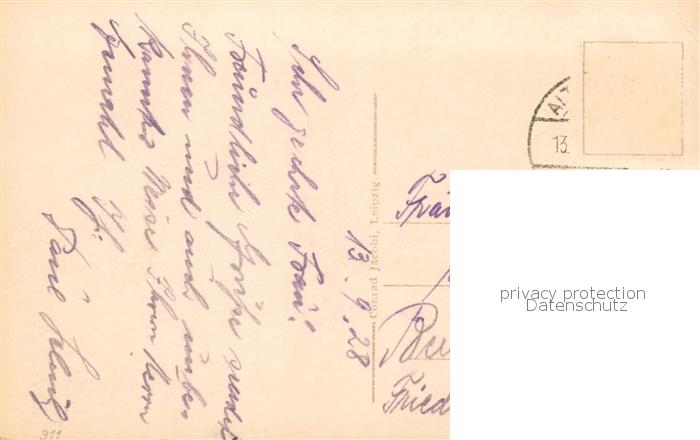 Sehr geehrte Frau!
Freundliche Grüße sendet
Ihnen und auch unbe-
kannter Weise Ihrem Herrn
Gemahl Ihr
Paul
13.9.28
Conrad Jacobi, Leipzig.
13.
Frau
Fried
311
privacy protection
Datenschutz